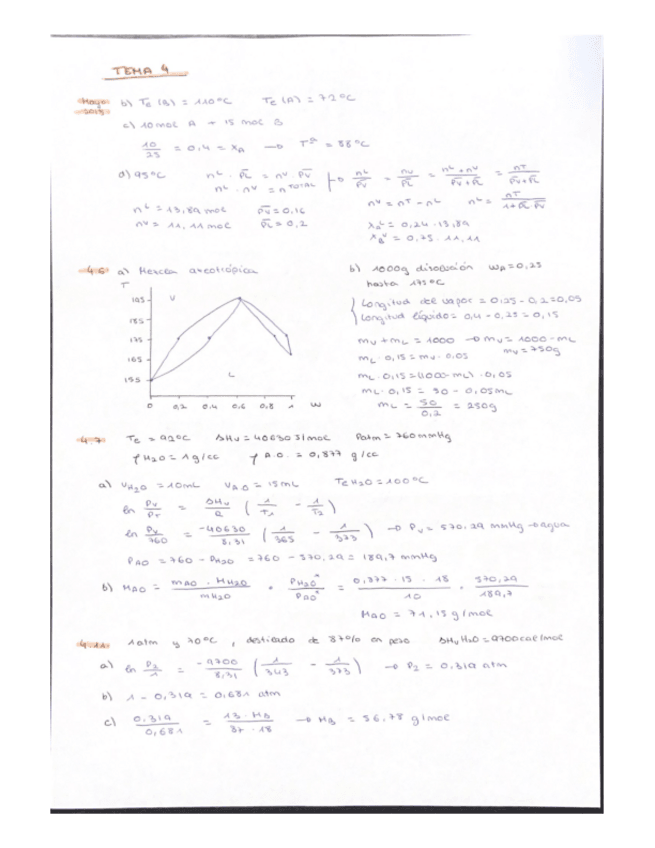 TEMA 4
Mayo 2015 b) Te (B) = 110ºC Te (A) = 72ºC
c) 10 mol A + 15 mol B
10/25 = 0,4 = xA → Tª = 88ºC
d) 95ºC nL · PL = nV · PV nL/PV = nV/PL = nL + nV/PV + PL = nT/PV + PL
nL · nV = nTOTAL nV = nT - nL nL = nT/1 + PL PV
nL = 13,89 mol PV = 0,16 xAL = 0,24 · 13,89
nV = 11,11 mol PL = 0,2 xBV = 0,75 · 11,11
4.6 a) Mezcla azeotrópica
T
195
V
185
175
165
155
L
0 0,2 0,4 0,6 0,8 1 w
b) 1000g disolución wA = 0,25
hasta 175ºC
Longitud del vapor = 0,25 - 0,2 = 0,05
Longitud líquido = 0,4 - 0,25 = 0,15
mV + mL = 1000 → mV = 1000 - mL
mL · 0,15 = mV · 0,05 mV = 750g
mL · 0,15 = (1000 - mL) · 0,05
mL · 0,15 = 50 - 0,05mL
mL = 50/0,2 = 250g
4.7 Te = 92ºC ΔHV = 40630 J/mol Patm = 760 mmHg
ρ H2O = 1 g/cc ρ A.O. = 0,877 g/cc
a) VH2O = 10mL VAO = 15mL Te H2O = 100ºC
ln PV/PT = ΔHV/R ( 1/T1 - 1/T2 )
ln PV/760 = -40630/8,31 ( 1/365 - 1/373 ) → PV = 570,29 mmHg → agua
PAO = 760 - PH2O = 760 - 570,29 = 189,7 mmHg
b) MAO = mAO · MH2O/mH2O · PH2O/PAO = 0,877 · 15 · 18/10 · 570,29/189,7
MAO = 71,15 g/mol
4.11 1 atm y 70ºC, destilado de 87% en peso ΔHV H2O = 9700 cal/mol
a) ln P2/1 = -9700/8,31 ( 1/343 - 1/373 ) → P2 = 0,319 atm
b) 1 - 0,319 = 0,681 atm
c) 0,319/0,681 = 13 · MB/87 · 18 → MB = 56,78 g/mol